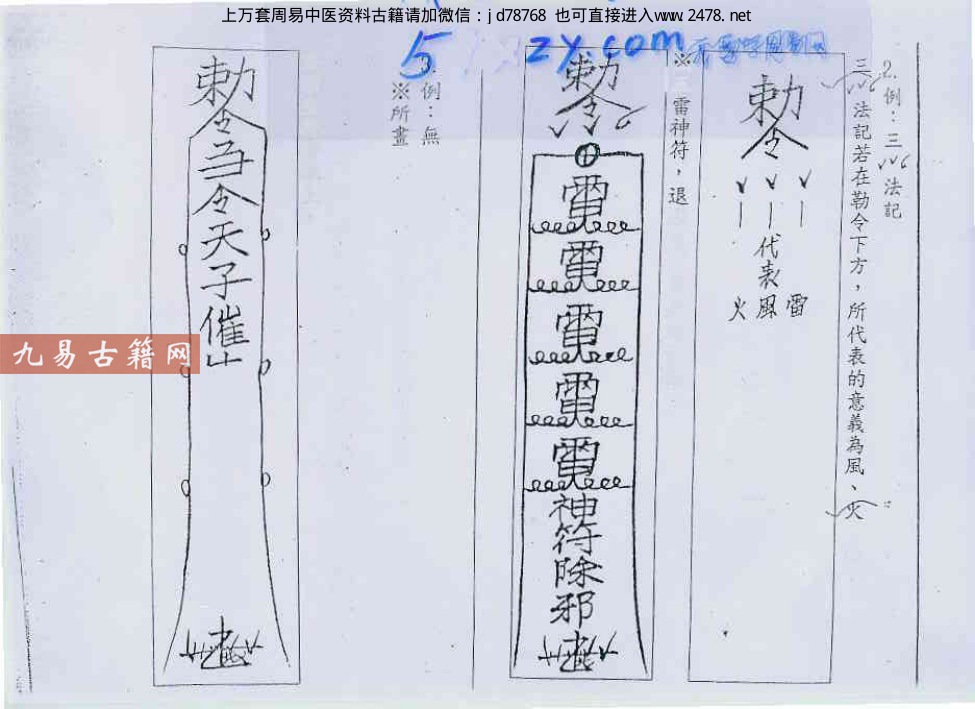 上万套周易中医资料古籍请加微信：jd78768 也可直接进入www.2478.net
5
zy.com
2.例：三法記
三法記若在勒令下方，所代表的意義為風、火
勅令
代表
雷
風
火
※三雷神符，退
勅令
雷
雷
雷
雷
雷
神符除邪
例：無
※所畫
勅令
令天子催
九易古籍网